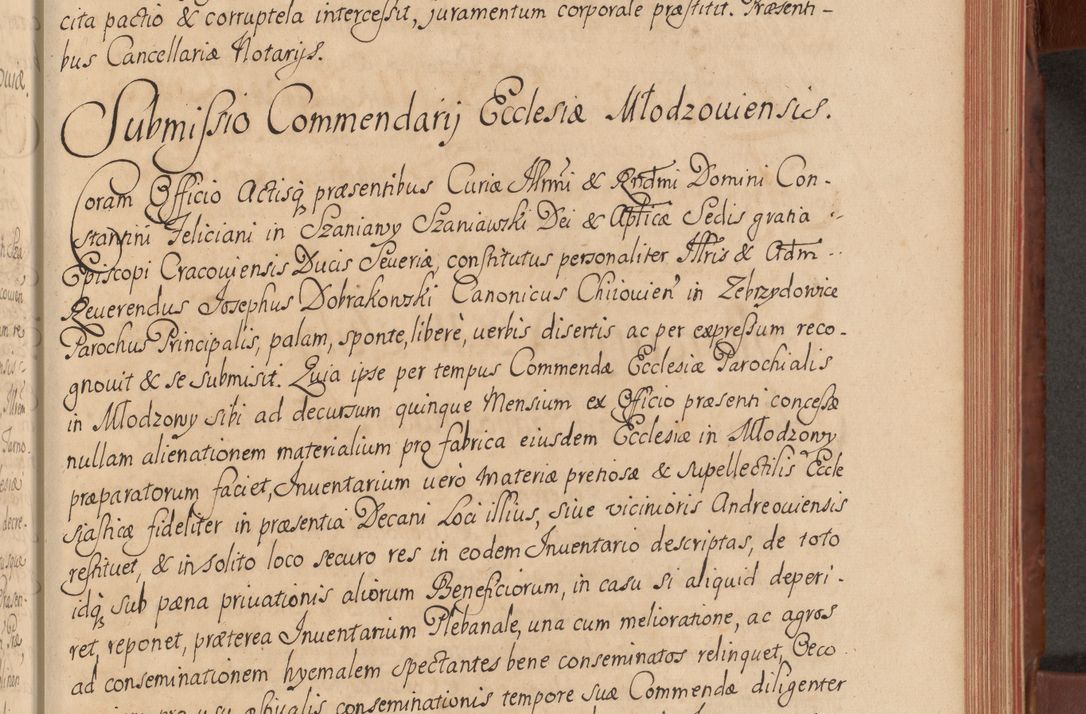 cita pactio & corruptela intercessit, juramentum corporale præstitit. Præsenti-
bus Cancellariæ Notarijs.
Submissio Commendarij Ecclesiæ Młodzoviensis.
Coram Officio Actisq̃ præsentibus Curiæ Illrm̃i & Rnd̃mi Domini Con-
stantini Feliciani in Szaniawy Szaniawski Dei & Aplicæ Sedis gratia
Episcopi Cracoviensis Ducis Severiæ, constitutus personaliter Illris & Adm
Reverendus Josephus Dobrakowski Canonicus Chiiovien̄ in Zebrzydowice
Parochus Principalis, palam, sponte, liberè, verbis disertis ac per expressum reco-
gnovit & se submisit. Quia ipse per tempus Commendæ Ecclesiæ Parochialis
in Młodzowy sibi ad decursum quinque Mensium ex Officio præsenti concessæ
nullam alienationem materialium pro fabrica eiusdem Ecclesiæ in Młodzowy
præparatorum faciet, Inventarium verò Materiæ pretiosæ & supellectilis Eccle
siasticæ fideliter in præsentia Decani Loci illius, sive vicinioris Andreoviensis
restituet, & in solito loco securo res in eodem Inventario descriptas, de toto
idq̃ sub pæna privationis aliorum Beneficiorum, in casu si aliquid deperi-
ret, reponet, præterea Inventarium Plebanale, una cum melioratione, ac agros
ad conseminationem hyemalem spectantes bene conseminatos relinquet, Oeco
pro usu æstivalis conseminationis tempore suæ Commendæ diligenter